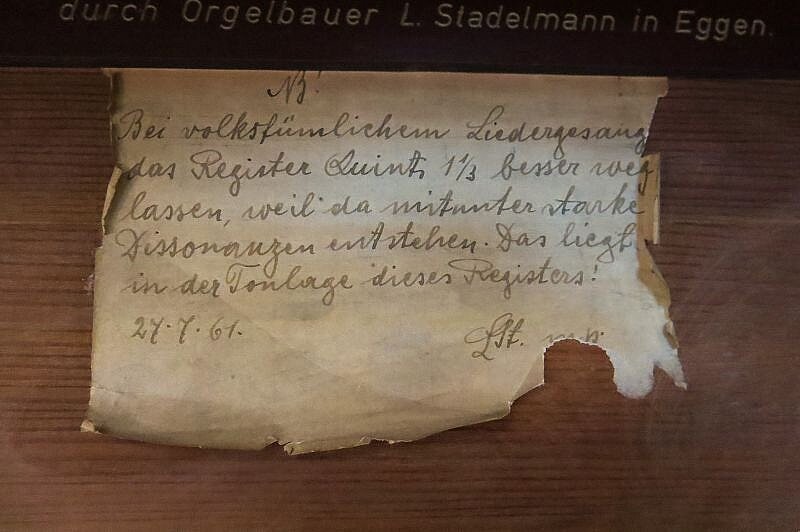 durch Orgelbauer L. Stadelmann in Eggen.
NB!
Bei volkstümlichem Liedergesang
das Register Quint 1⅓ besser weg
lassen, weil da mitunter starke
Dissonanzen entstehen. Das liegt
in der Tonlage dieses Registers!
27.7.61.
LSt.